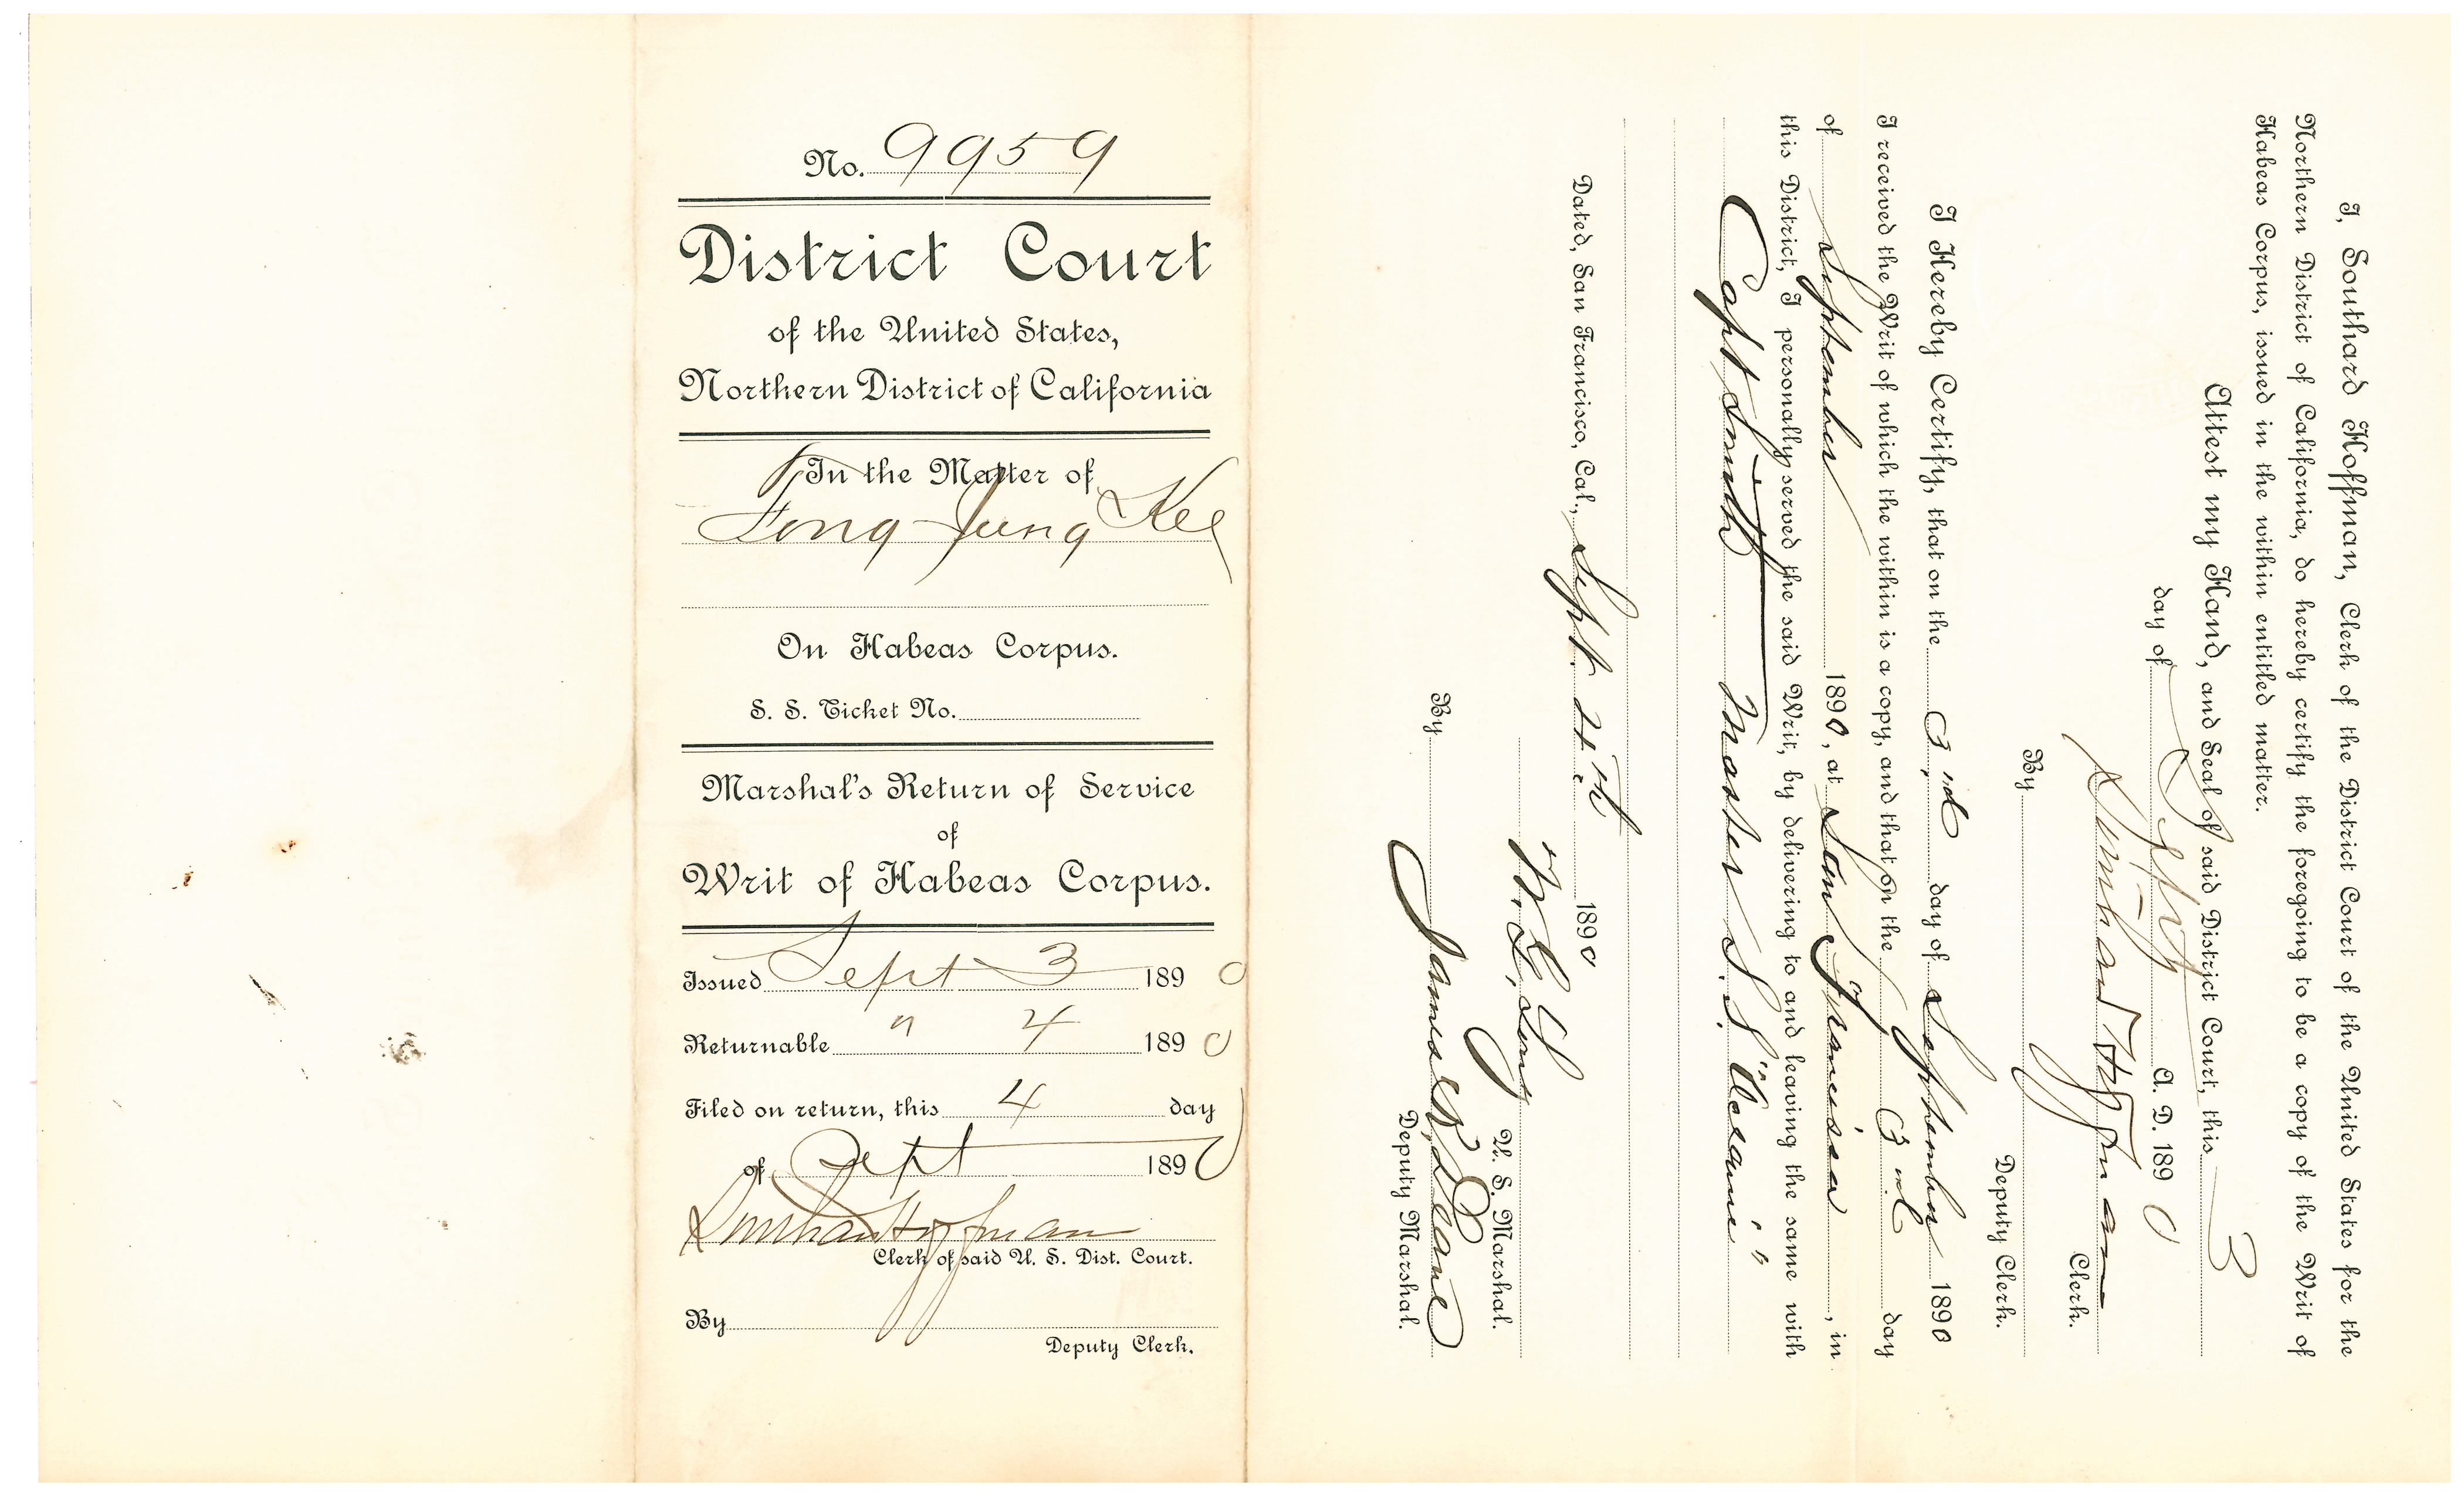 No. 9959
District Court
of the United States,
Northern District of California
In the Matter of
Fong Jung Kee
On Habeas Corpus.
S. S. Ticket No.
Marshal's Return of Service
of
Writ of Habeas Corpus.
Issued Sept 3 1890
Returnable " 4 1890
Filed on return, this 4 day
of Sept 1890
Southard Hoffman
Clerk of said U. S. Dist. Court.
By
Deputy Clerk.
I, Southard Hoffman, Clerk of the District Court of the United States for the
Northern District of California, do hereby certify the foregoing to be a copy of the Writ of
Habeas Corpus, issued in the within entitled matter.
Attest my Hand, and Seal of said District Court, this 3
day of Sept A. D. 1890
Southard Hoffman
Clerk.
By
Deputy Clerk.
I Hereby Certify, that on the 3rd day of September 1890
I received the Writ of which the within is a copy, and that on the 3rd day
of September 1890, at San Francisco, in
this District, I personally served the said Writ, by delivering to and leaving the same with
Capt Smith Master S. S. "Oceanic"
Dated, San Francisco, Cal., Sept. 4th 1890
W. G. Long
U. S. Marshal.
By James R. Deane
Deputy Marshal.